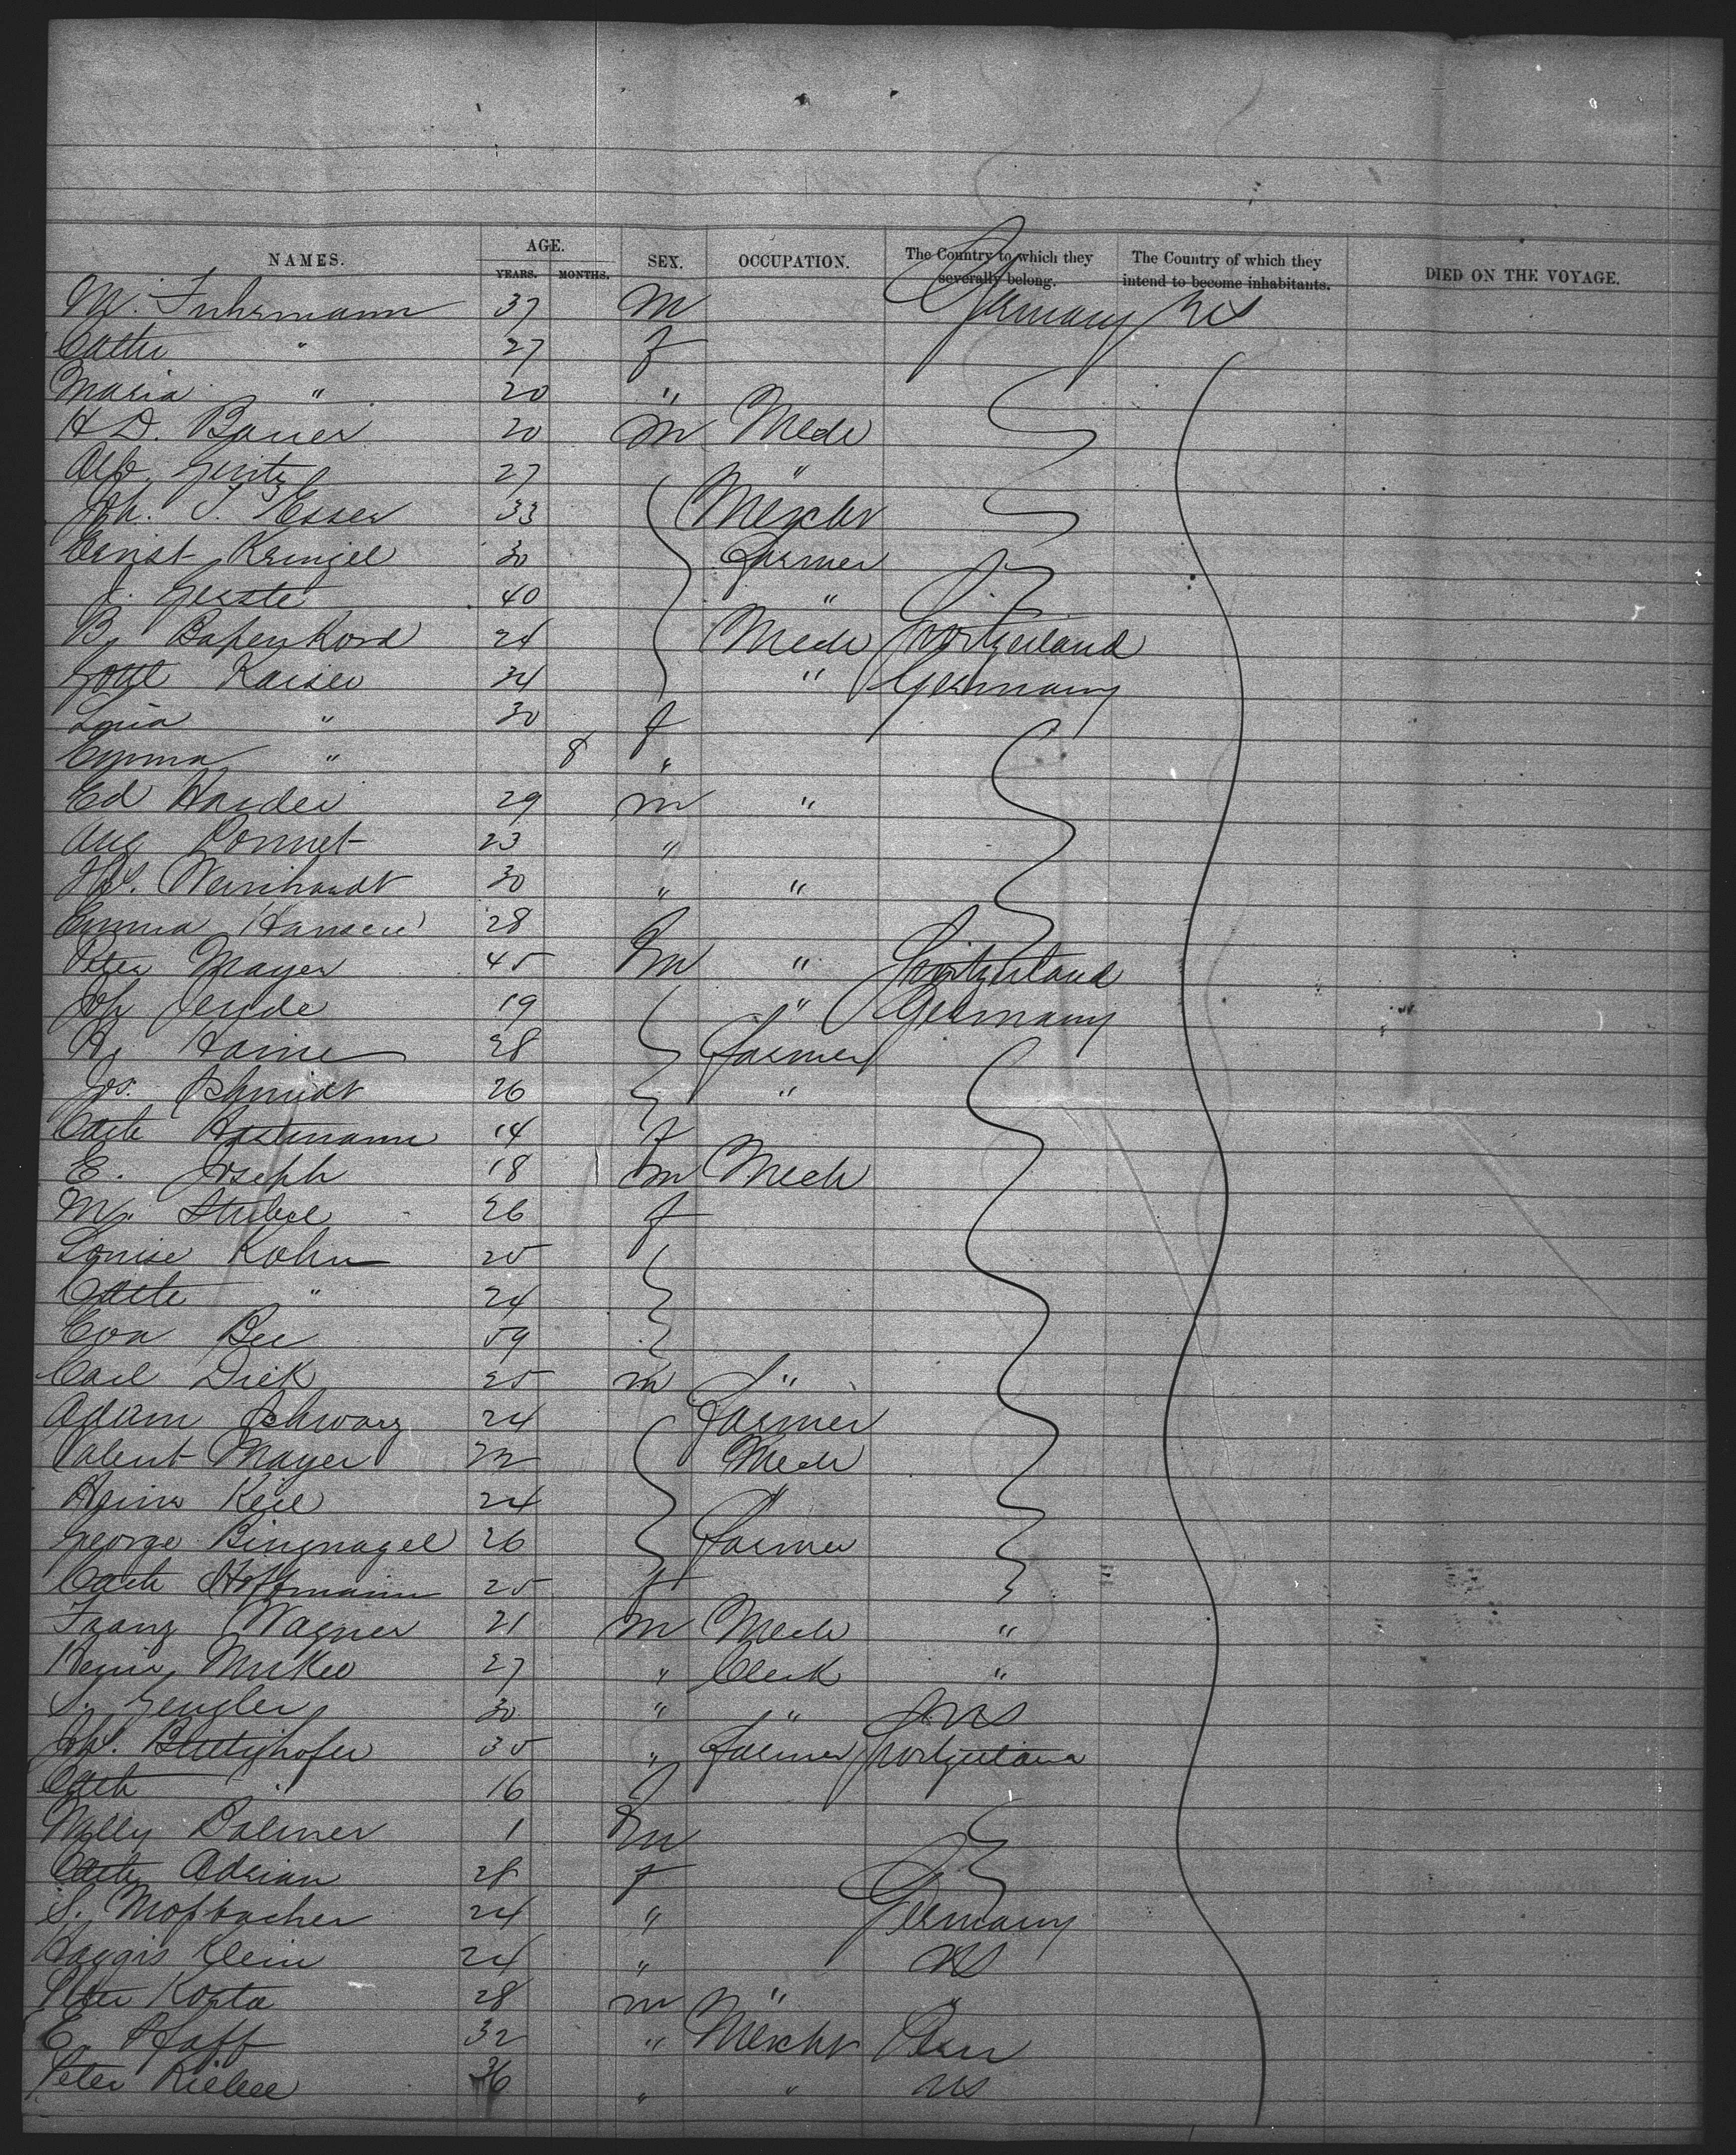 NAMES. AGE. YEARS. MONTHS. SEX. OCCUPATION. The Country to which they severally belong. The Country of which they intend to become inhabitants. DIED ON THE VOYAGE.
M. Fuhrmann 37 m Germany US
Cathe " 27 f
Maria " 20 "
H D. Bauer 20 m Mech
27 "
Joh. J. Esser 33 Merchr
Ernst Kringel 30 farmer
J. Gerste 40 "
B. Papenkord 24 Mech Switzerland
Gottl Kaiser 34 " Germany
30 f
Emma " 8 "
Ed Harder 29 m "
Aug Bonnet 23 "
Weinhardt 30 " "
Emma Hansen 28 f
Peter Mayer 45 m " Switzerland
19 " Germany
28 farmer
Jos. Schmidt 26 "
Cath 14 f
E. Joseph 18 m Mech
M. Stubel 26 f
Louise Kohn 25
Cathe " 24
Eva Bee 59
Carl Dick 25 m "
Adam Schwarz 24 farmer
Valent Mayer 22 Mech
Heinr Keil 24 "
George Bingnagel 26 farmer
Cath Hoffmann 25 f
Franz Wagner 21 m Mech "
27 " Clerk "
S. Gengler 30 " " US
35 " farmer Switzerland
Cath " 16 f
Willy Balmer 1 m
Cath Adrian 28 f
S. Mosbacher 24 " Germany
Klein 24 " US
Peter Kosta 28 m " "
E. Pfaff 32 " Merchr Peru
Peter 36 " " US